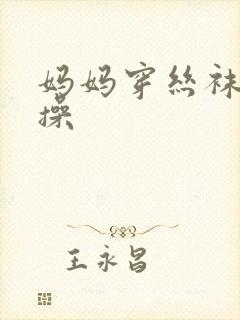 妈妈穿丝袜
操
王永昌